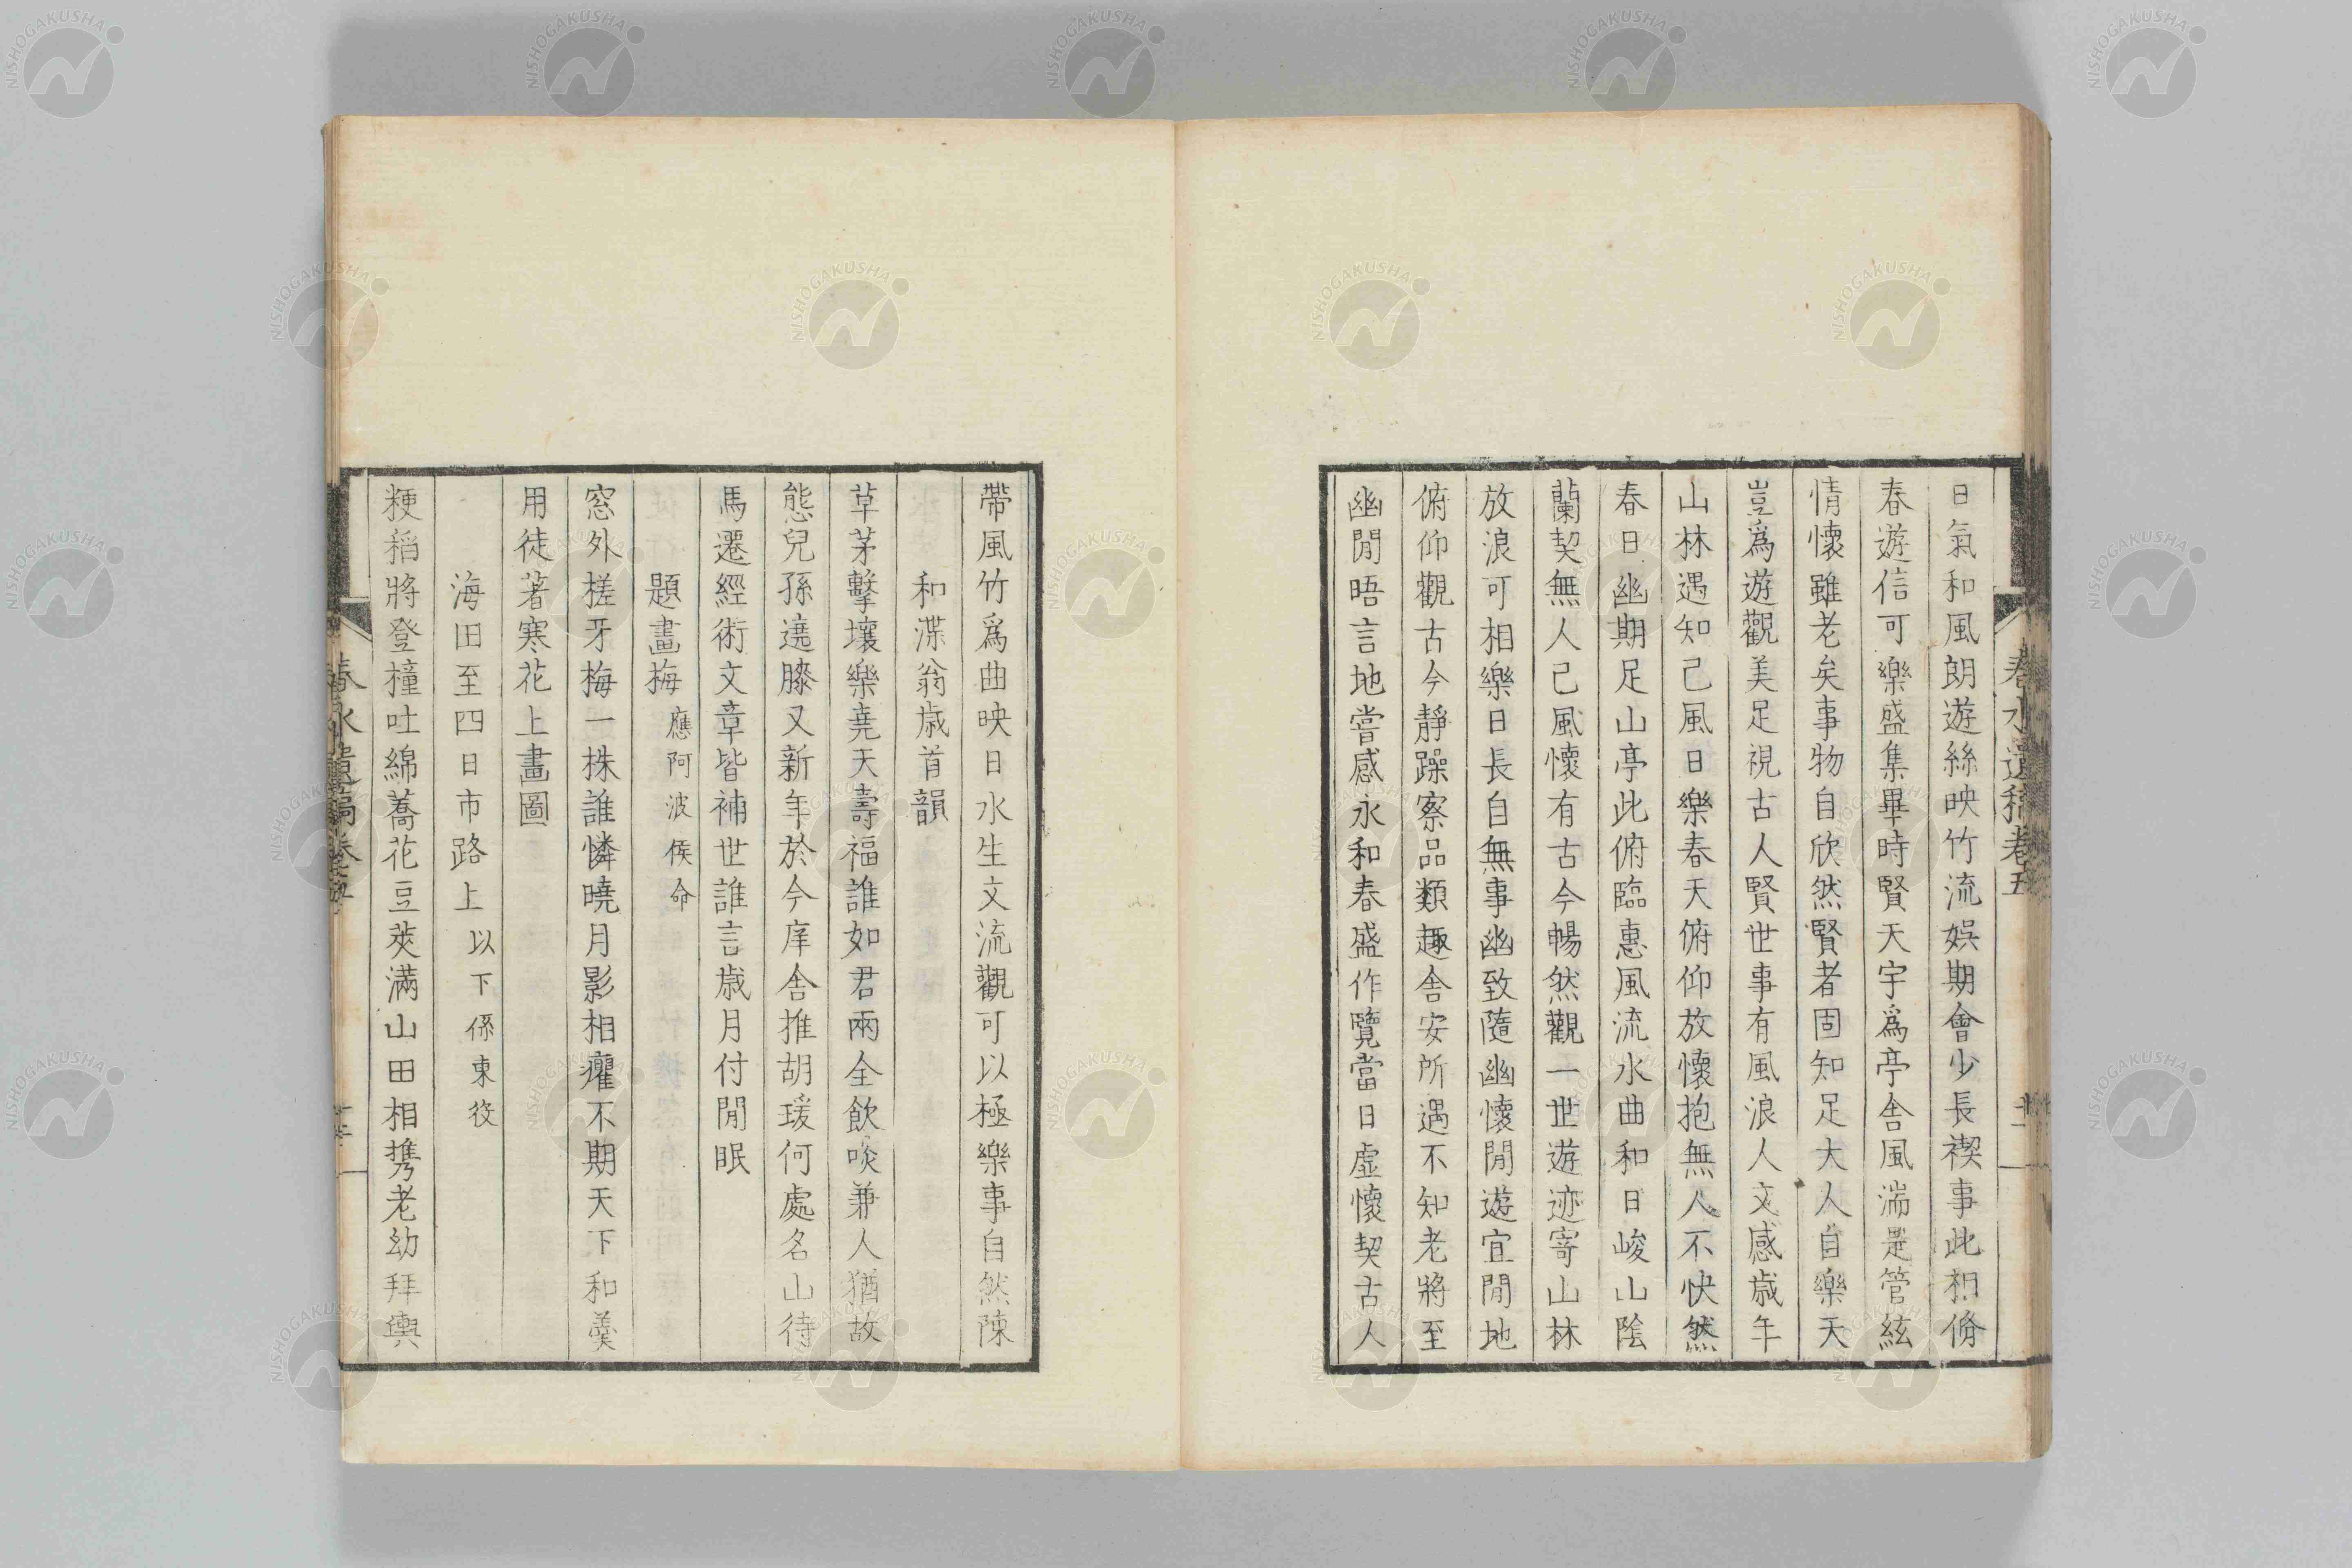 日氣和風朗遊絲映竹流娛期會少長禊事此相脩
春遊信可樂盛集畢時賢天宇爲亭舍風湍是管絃
情懷雖老矣事物自欣然賢者固知足大人自樂天
豈爲遊觀美足視古人賢世事有風浪人文感歲年
山林遇知己風日樂春天俯仰放懷抱無人不快然
春日幽期足山亭此俯臨惠風流水曲和日峻山陰
蘭契無人己風懷有古今暢然觀一世遊迹寄山林
放浪可相樂日長自無事幽致隨幽懷閒遊宜閒地
俯仰觀古今靜躁察品類趣舍安所遇不知老將至
幽閒晤言地嘗感永和春盛作覽當日虛懷契古人
春水遺稿卷五
帶風竹爲曲映日水生文流觀可以極樂事自然陳
和渫翁歲首韻
草茅擊壤樂堯天壽福誰如君兩全飲啖兼人猶故
態兒孫遶膝又新年於今庠舍推胡瑗何處名山待
馬遷經術文章皆補世誰言歲月付閒眠
題畫梅 應阿波侯命
窓外槎牙梅一株誰憐曉月影相癯不期天下和羹
用徒著寒花上畫圖
海田至四日市路上 以下係東役
粳稻將登橦吐綿蕎花豆莢滿山田相携老幼拜輿
春水遺稿卷五
NISHOGAKUSHA